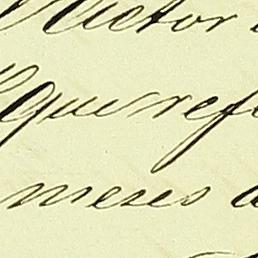 Victor
que refe
meses a